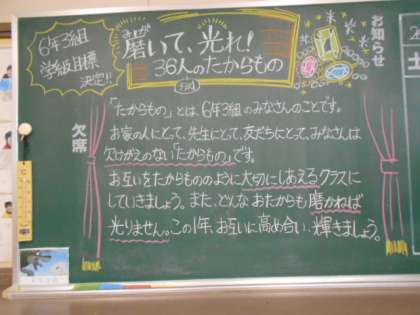 6年3組
学級目標
決定!!
みがが
磨いて、光れ!
36人のたからもの
お知らせ
「たからもの」とは、6年3組のみなさんのことです。
お家の人にとって、先生にとって、友だちにとって、みなさんは
欠けがえのない「たからもの」です。
お互いをたからもののように大切にしあえるクラスに
していきましょう。また、どんなおたからも磨かねば
光りません。この1年、お互いに高め合い、輝きましょう。
欠席
土